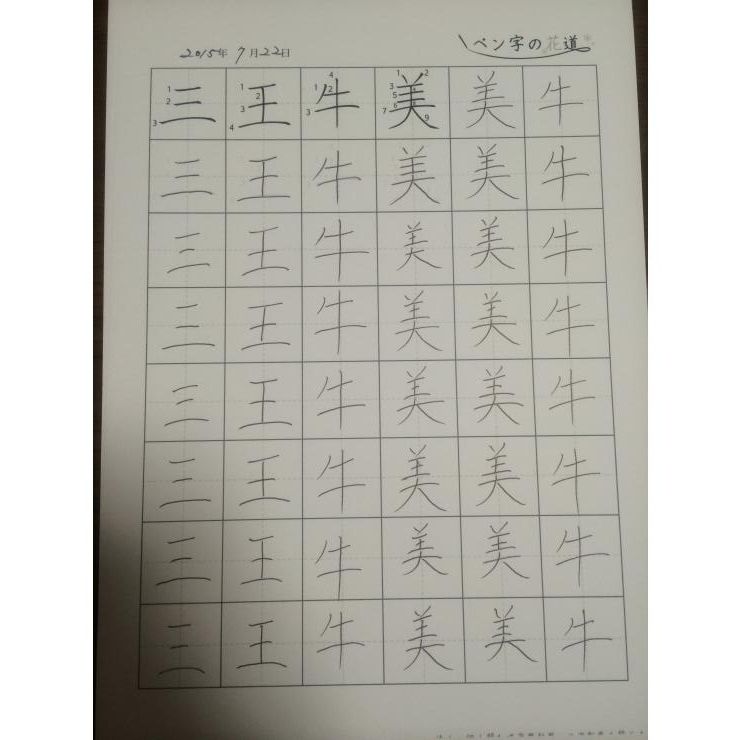 2015年 7月22日
ペン字の花道
三 王 牛 美 美 牛
三 王 牛 美 美 牛
三 王 牛 美 美 牛
三 王 牛 美 美 牛
三 王 牛 美 美 牛
三 王 牛 美 美 牛
三 王 牛 美 美 牛
三 王 牛 美 美 牛